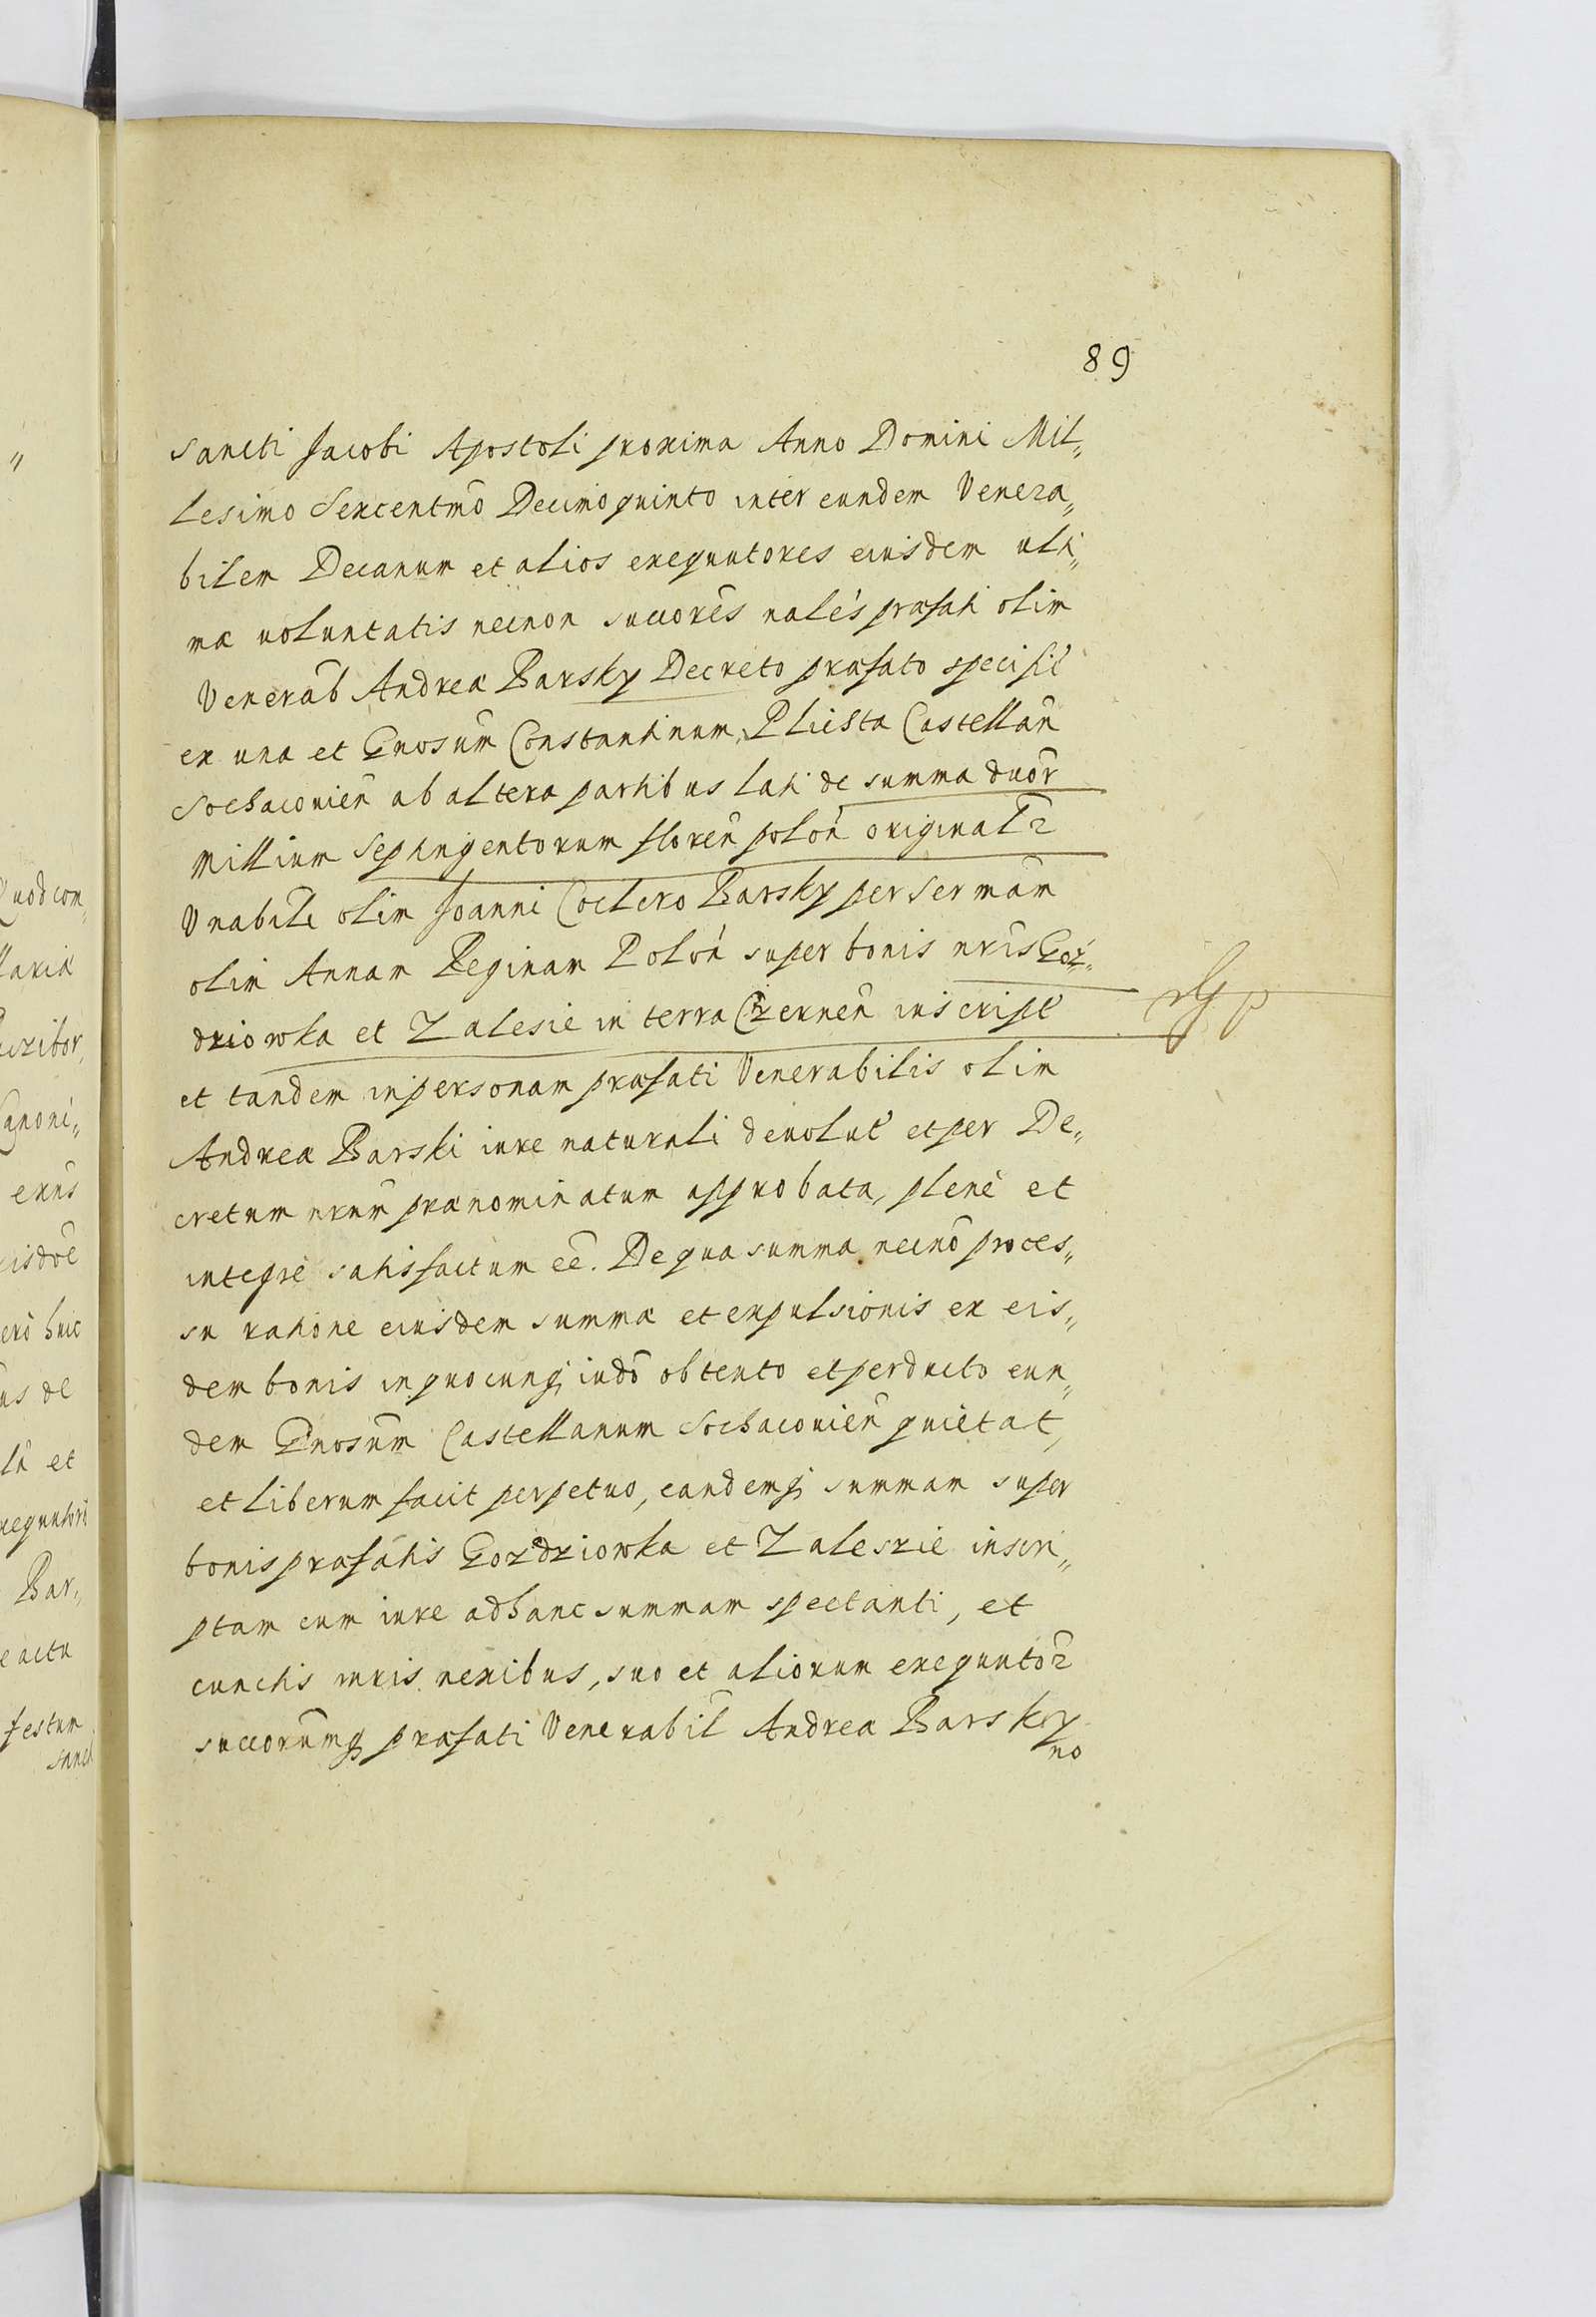 89
Sancti Jacobi Apostoli proxima Anno Domini Mil„
lesimo Sexcentmō Decimoquinto inter eundem Venera„
bilem Decanum et alios exequutores eiusdem ulti„
mæ uoluntatis necnon succorēs nalēs præfati olim
Venerāb Andreæ Barsky Decreto præfato specifiē
ex una et Gnosūm Constantinum Plichta Castellan̄
Sochaczouien̄ ab altera partibus lati de summa duor̄
Millium Septingentorum floren̄ polon̄ originalr̄
Vnabili olim Joanni Coclero Barsky per Ser mām
olim Annam Reginam Polon̄ super bonis nrīs Goz„
dziowka et Zalesie in terra Czernen̄ inscript̄
et tandem in personam præfati Venerabilis olim
Andreæ Barski iure naturali deuolut̄ et per De„
cretum nrūm prænominatum approbata, plenè et
integrè satisfactum eē. De qua summa necnō proces„
su ratione eiusdem summæ et expulsionis ex eis„
dem bonis in quocunq; iudō obtento et perducto eun„
dem Gnosūm Castellanum Sochaczouien̄ quietat,
et liberum facit perpetuo, eandemq; summam super
bonis præfatis Gozdziowka et Zaleszie inscri„
ptam cum iure ad hanc summam spectanti, et
cunctis iuris nexibus, suo et aliorum exequutor̄
succorūmq; præfati Venerabil̄ Andreæ Barsky
no